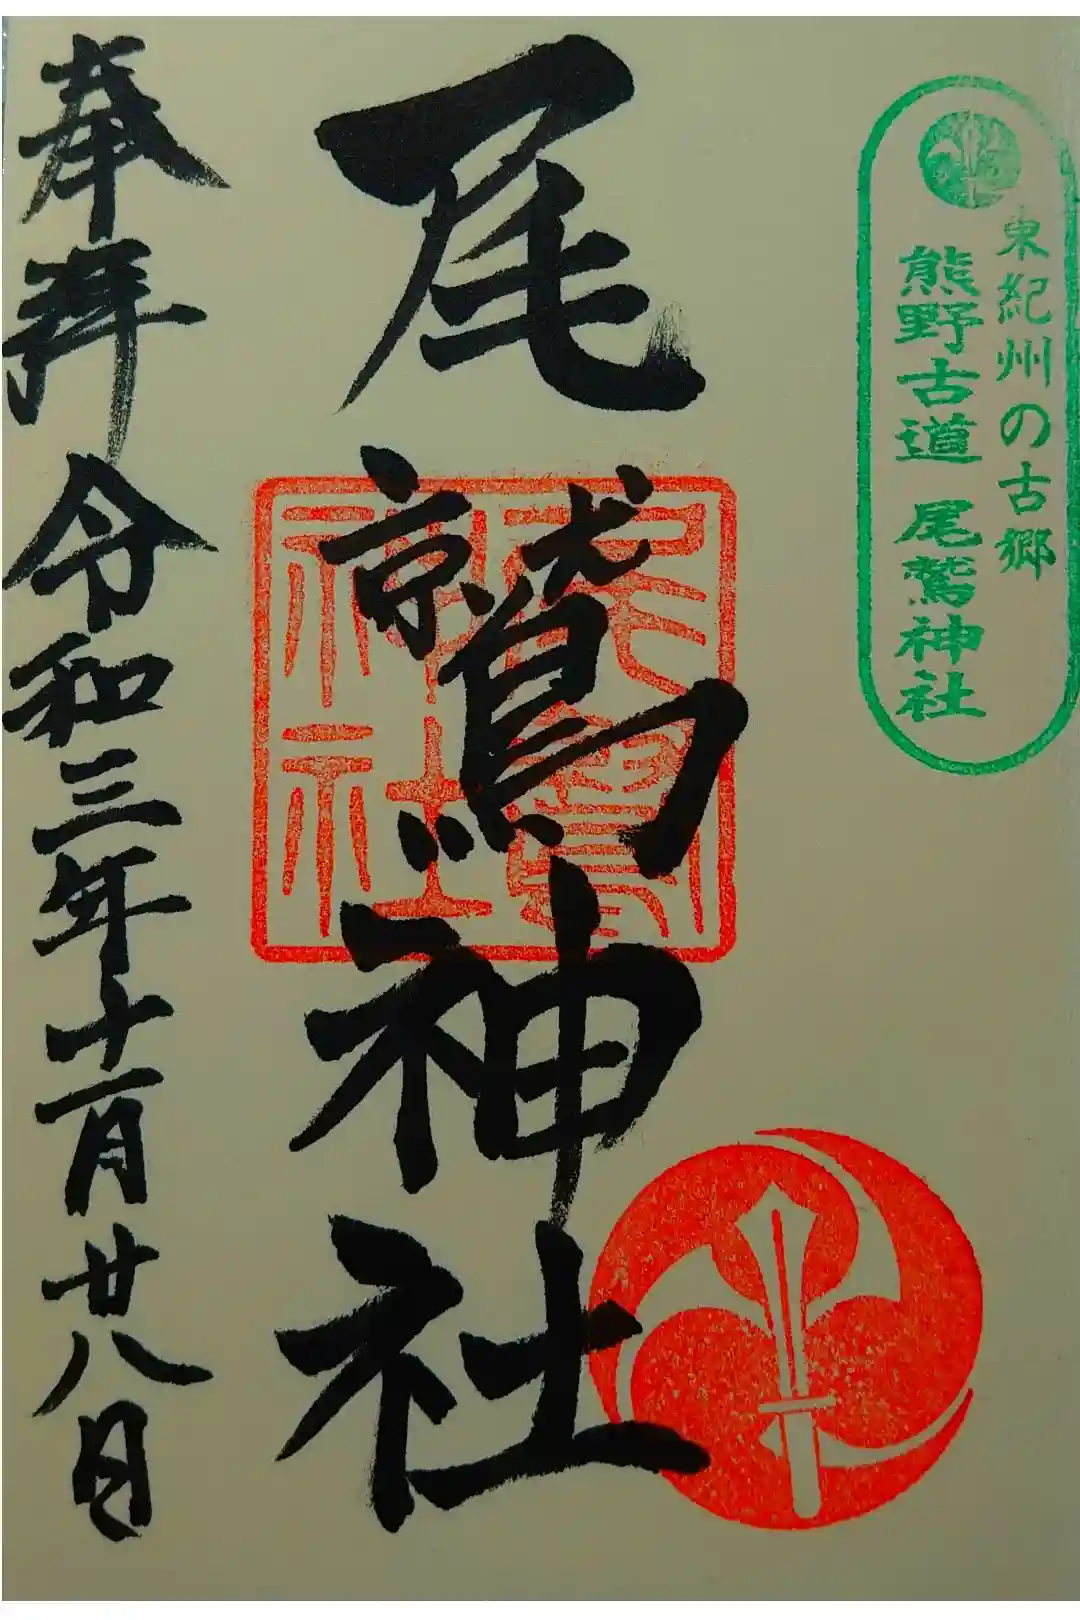 東紀州の古郷
熊野古道 尾鷲神社
尾鷲神社
尾鷲
神社
奉拝 令和三年十一月廿八日